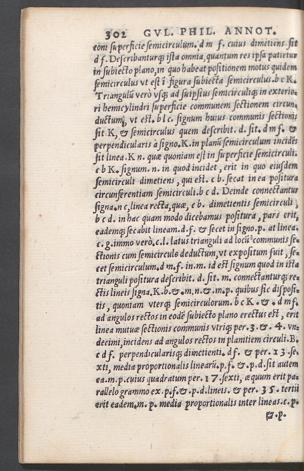 302 GVL. PHIL. ANNOT.
eoni superficie semicirculum. d m f. cuius dimetiens sit
d f. Describanturq; ista omnia, quantum res ipsa patietur
in subiecto plano, in quo habeat positionem motus quidem
semicirculus vt est i figura subiecta semicirculus. b c K.
Triangulũ verò vsq; ad suipsius semicirculũq; in exterio-
ri hemicylindri superficie communem sectionem circun-
ductum, vt est. b l c. signum huius communis sectionis
sit K, & semicirculus quem describit. d. sit. d m f. &
perpendicularis à signo. K. in planũ semicirculum incidẽs
sit linea. K n. quæ quoniam est in superficie semicirculi.
c b K. signum. n. in quod incidet, erit in quo eiusdem
semicirculi dimetiens, qui est. c b. secat in ea positura
circunferentiam semicirculi. b c d. Deinde connectantur
signa. n c, linea recta, quæ, c b. dimetientis semicirculi,
b c d. in hac quam modo dicebamus positura, pars erit,
eademq; secabit lineam. d. f. & secet in signo. p. at linea.
c. g. immo verò. c. l. latus trianguli ad locũ communis se-
ctionis cum semicirculo deductum, vt expositum fuit, se-
cet semicirculum. d m. f. in. m. id est signum quod in ista
trianguli positura describit. d. sit. m. connectanturq; re-
ctis lineis signa. K. b. & . m. n. & . m. p. quibus sic disposi-
tis, quoniam vterq; semicirculorum. b c K. & . d m f.
ad angulos rectos in eodẽ subiecto plano erectus est, erit
linea mutuæ sectionis communis vtriq; per. 3. & . 4. vn
decimi, incidens ad angulos rectos in planitiem circuli. B.
c d f. perpendicularisq; diimetienti. d f. & per. 13. se-
xti, media proportionalis linearũ. p. f. & . p. d. sit autem
ea. m. p. cuius quadratum per. 17. sexti, æquum erit pa-
rallelogrammo ex. p. f. & . p. d. lineis. & per. 35. tertii
erit eadem. m. p. media proportionalis inter lineas. c. p.
&. p.